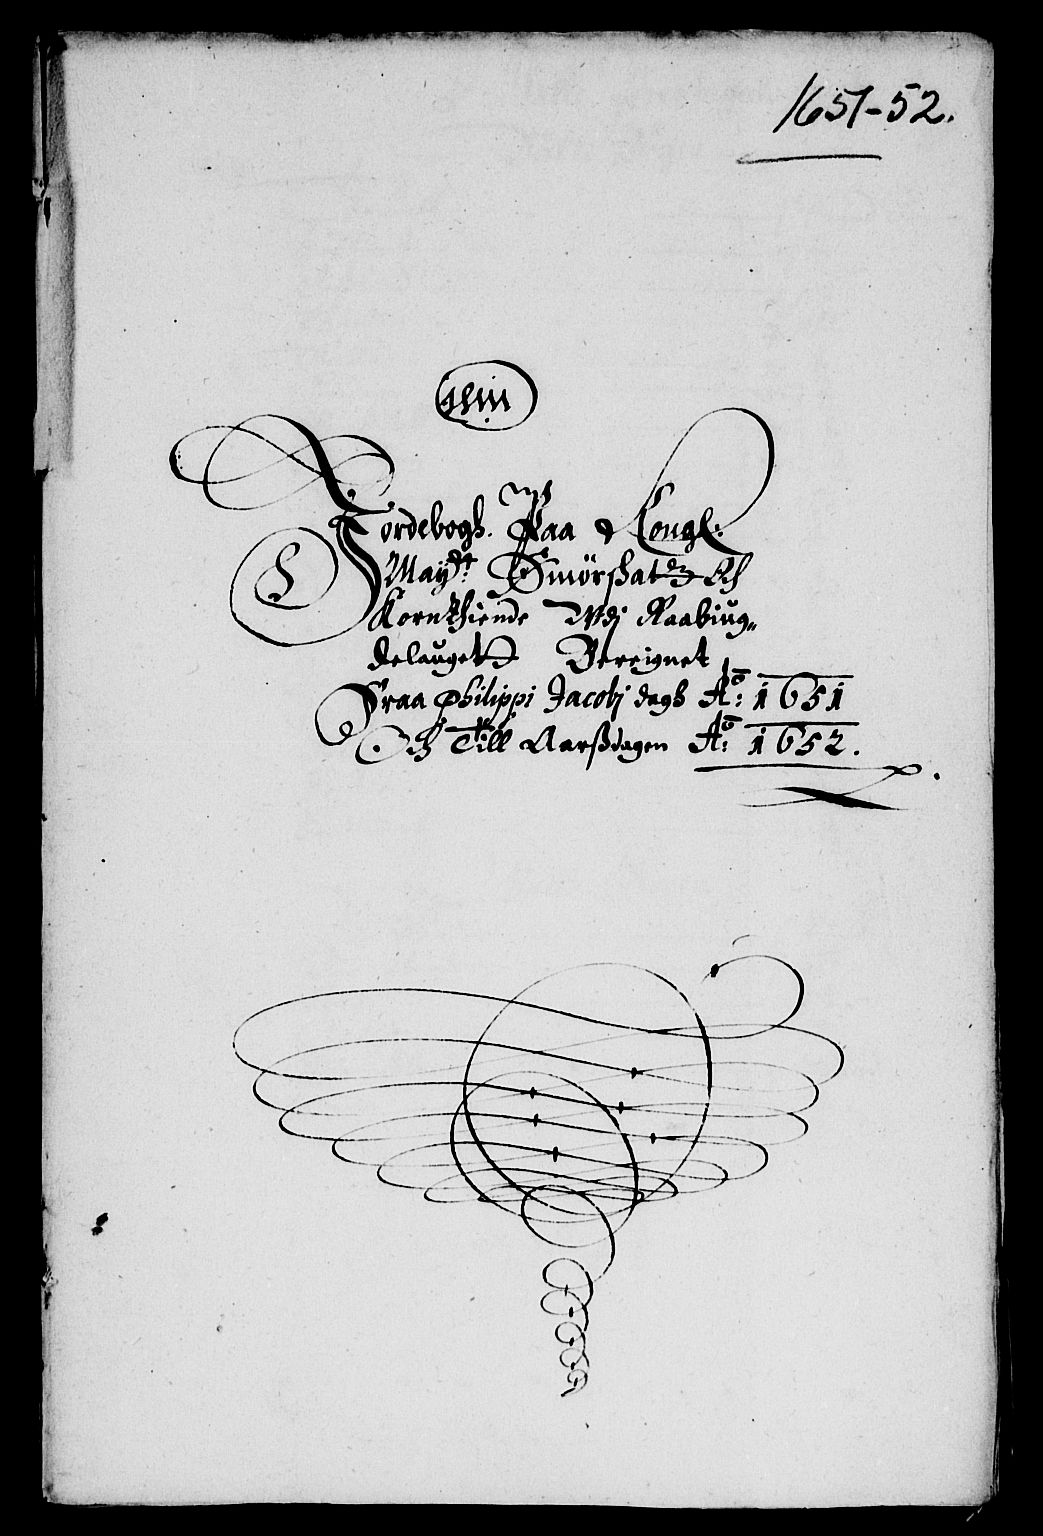 1651-52.
Jordebogh. Paa Kongl:
Maytt: Smörskatt Och
Kornthiende Vdj Raabiug-
delauget Bereignet
Fraa Philippi Jacobj dags Ao: 1651
Och Till Aarßdagen Ao: 1652.